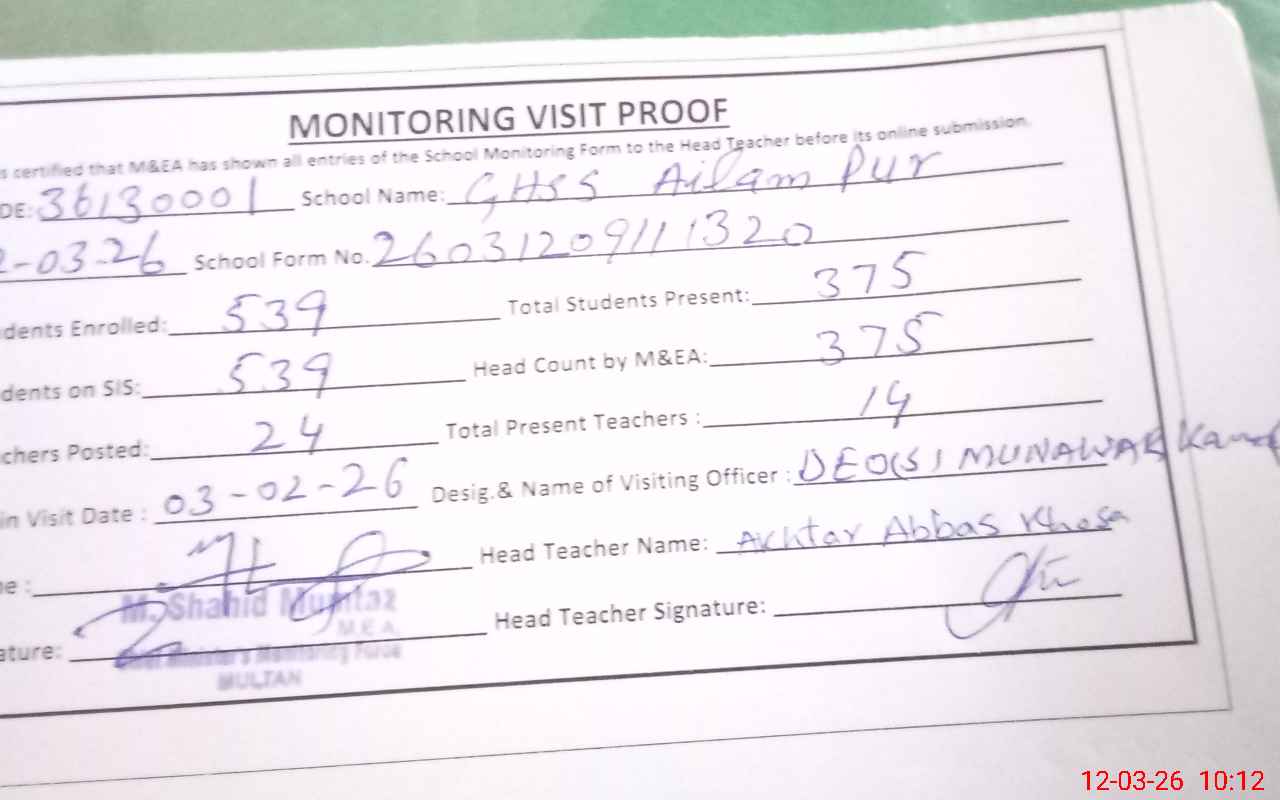 MONITORING VISIT PROOF
s certified that M&EA has shown all entries of the School Monitoring Form to the Head Teacher before its online submission.
DE: 36130001 School Name: GHSS Ailam Pur
2-03-26 School Form No. 2603120911320
dents Enrolled: 539 Total Students Present: 375
dents on SIS: 539 Head Count by M&EA: 375
chers Posted: 24 Total Present Teachers : 14
in Visit Date : 03-02-26 Desig.& Name of Visiting Officer : DEO(S) MUNAWAR
e : Head Teacher Name: Akhtar Abbas Khosa
M. Shahid Mumtaz
M.E.A.
ature: Head Teacher Signature:
Minister's Monitoring Force
MULTAN
12-03-26 10:12